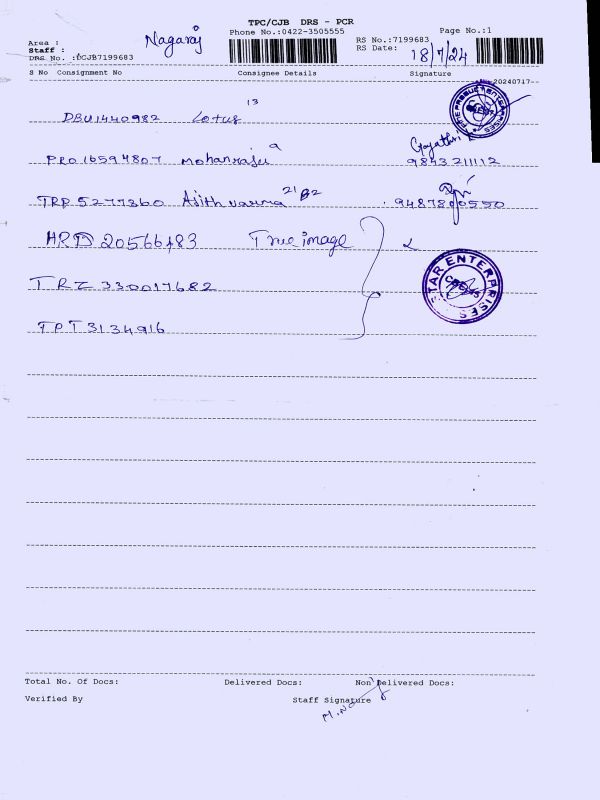 TPC/CJB DRS - PCR
Phone No.:0422-3505555
Page No.:1
Area :
Nagaraj
RS No.:7199683
Staff :
RS Date: 18/7/24
DRS No. :CJB7199683
S No Consignment No Consignee Details Signature
20240717
DBU1440982 Lotus 13
PRO16594807 Mohanraju 9 Gayathri
9843211112
TRP5277360 Ajith varma 21 B2 9487800550
HRD20566483 True image
STAR ENTERPRISES
TRZ330017682
TPT3134916
Total No. Of Docs: Delivered Docs: Non Delivered Docs:
Verified By Staff Signature